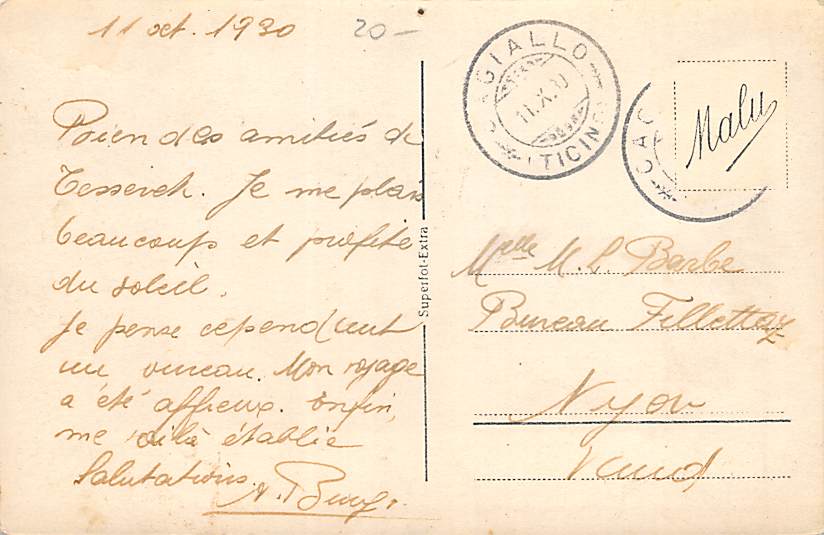 11 oct. 1930 20-
Bien des amitiés de
Tesserete. Je me plais
beaucoup et profite
du soleil.
Je pense cependant
au bureau. Mon voyage
a été affreux. Enfin,
me voilà établie
Salutations.
CAGIALLO
11.X.30
(TICINO)
CAG
Malu
Superfot-Extra
Melle M. L. Barbe
Bureau Fillettaz
Nyon
Vaud